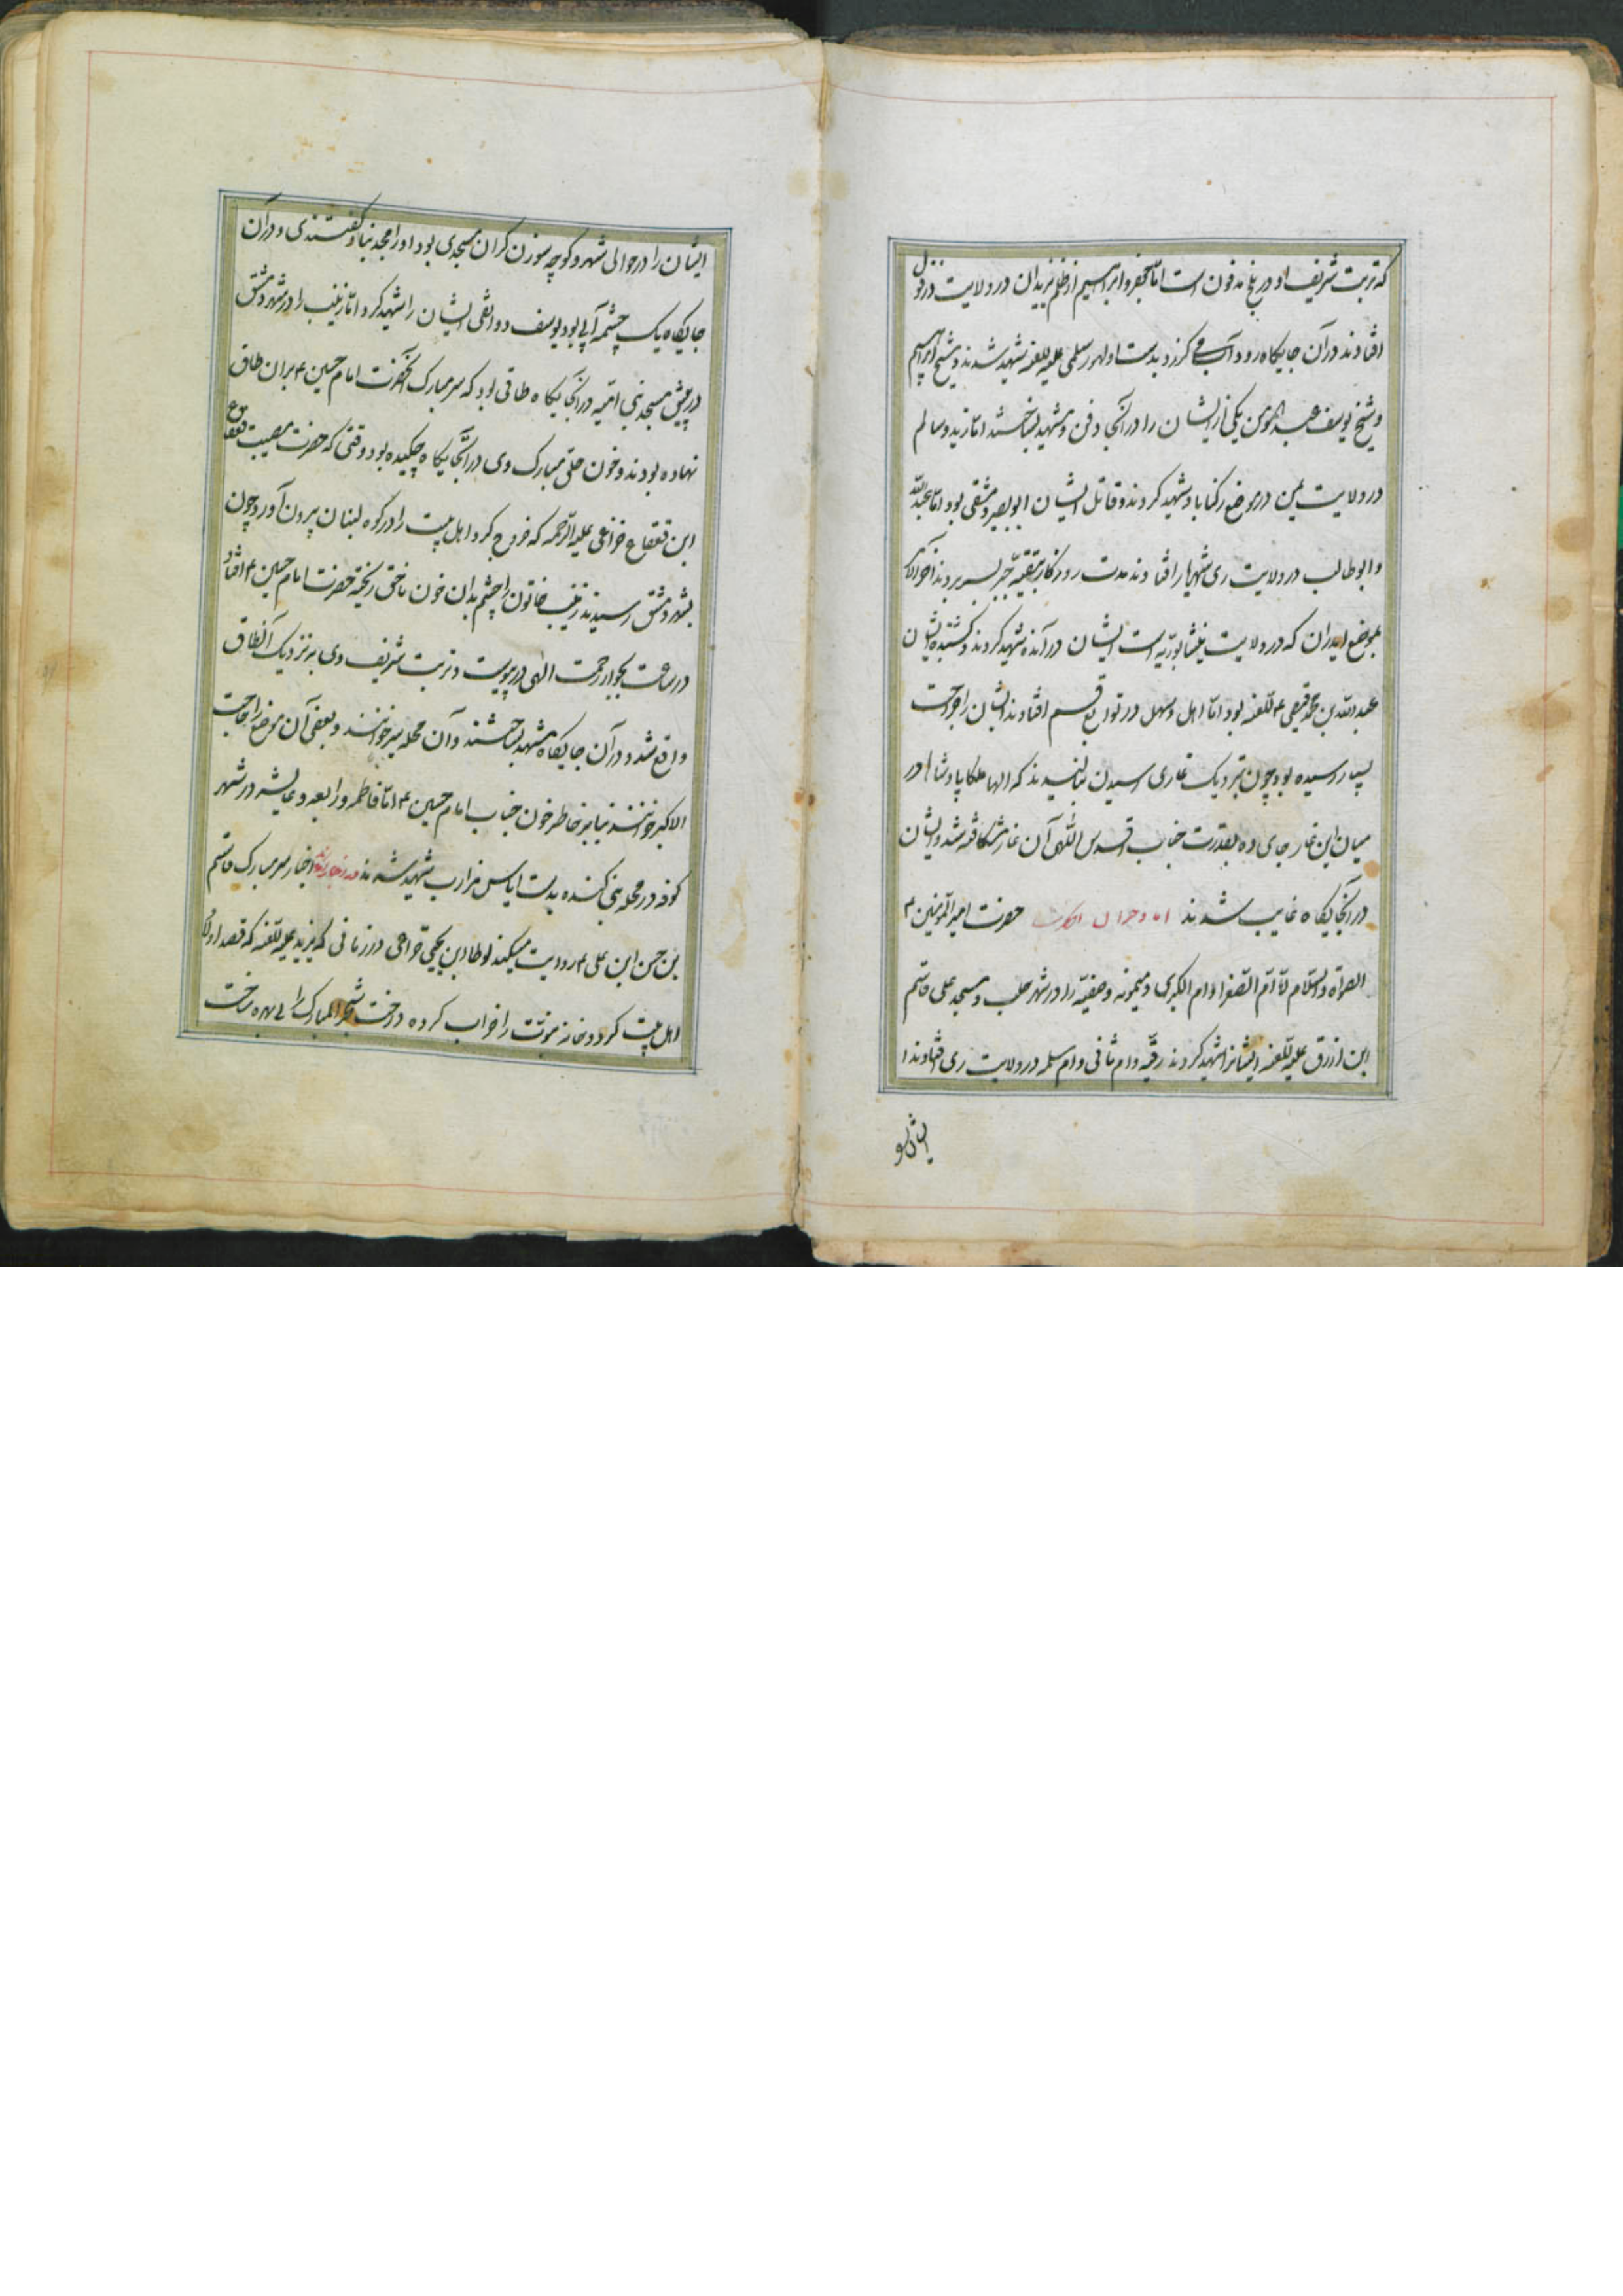 که تربت شریف او در بلخ مدفون است امّا جعفر و ابراهیم از ظلم یزیدان در ولایت دزفول
افتادند در آن جایگاه رود آب می کرزد بدست اولهور سلمی علیه للعنه شهید شدند و شیخ ابراهیم
و شیخ یوسف عبد المومن یکی از ایشان را در آنجا دفن و مشهد بساختند امّا زید و سالم
در ولایت یمن در موضع رکناباد شهید کردند و قاتل ایشان ابوبصیر دمشقی بود امّا عبدالله
و ابوطالب در ولایت ری شهریار افتادند مدت روزگار بتقیّه بسر بردند آخر
بموضع ایدران که در ولایت نیشابوریه است ایشان در آمده شهید کردند و کشنده ایشان
عبدالله بن محمد للعنه بود امّا اهل و سهل در توابع قم افتادند ایشان را جراحت
بسیار رسیده بود چون بنزدیک غاری رسیدن بنالیدند که الها ملکا پادشاها در
میان این غار جای ده بقدرت جناب اقدس اللهی آن غار شکافته شد و ایشان
در آنجایگاه غایب شدند اما دختران حضرت امیرالمؤمنین ع
الصلواة والسّلام امّا امّ الصّغرا و ام الکبری و میمونه و صفیّه را در شهر حلب و مسجد علی قاسم
ابن ازرق علیه للعنه ایشانرا شهید کردند رقیّه و ام ثانی و ام سلمه در ولایت ری افتادند ا
ایشان را در حوالی شهر و کوچه سوزن کران مسجدی بود او را مجد بنا گفتندی و در آن
جایگاه یک چشمه آبی بود یوسف دواثقی ایشان را شهید کرد امّا زینب را در شهر دمشق
در پیش مسجد بنی امّیه در آنجایگاه طاقی بود که سر مبارک آنحضرت امام حسین ع بر ان طاق
نهاده بودند و خون حلق مبارک وی در آنجایگاه چکیده بود وقتی که حضرت مصیب قعقاع
ابن قعقاع خزاعی علیه الرّحمه که خروج کرد اهل بیت را در کوه لبنان بیرون آورد چون
بشهر دمشق رسیدند زینب خاتون را چشم بدان خون ناحق ریخته حضرت امام حسین ع افتاد
در ساعت بجوار رحمت الهی در پیوست و تربت شریف وی به نزدیک آنطاق
واقع شد و در آن جایگاه مشهد بساختند و آن محله سر خوانند و بعضی آن موضع را حاجت
الاکبر خوانند بنا بر خاطر خون جناب امام حسین ع امّا فاطمه و رابعه و عایشه در شهر
کوفه در محله بنی کنده بدست ایاس مزارب شهید شدند اخبار سر مبارک قاسم
بن حسن ابن علی ع روایت میکند لوط ابن یحیی خزاعی در زمانی که یزید علیه للعنه که قصد اولاد
اهل بیت کرد و خانه نبوّت را خراب کرده درخت شجر المبارک را بی بهره ساخت